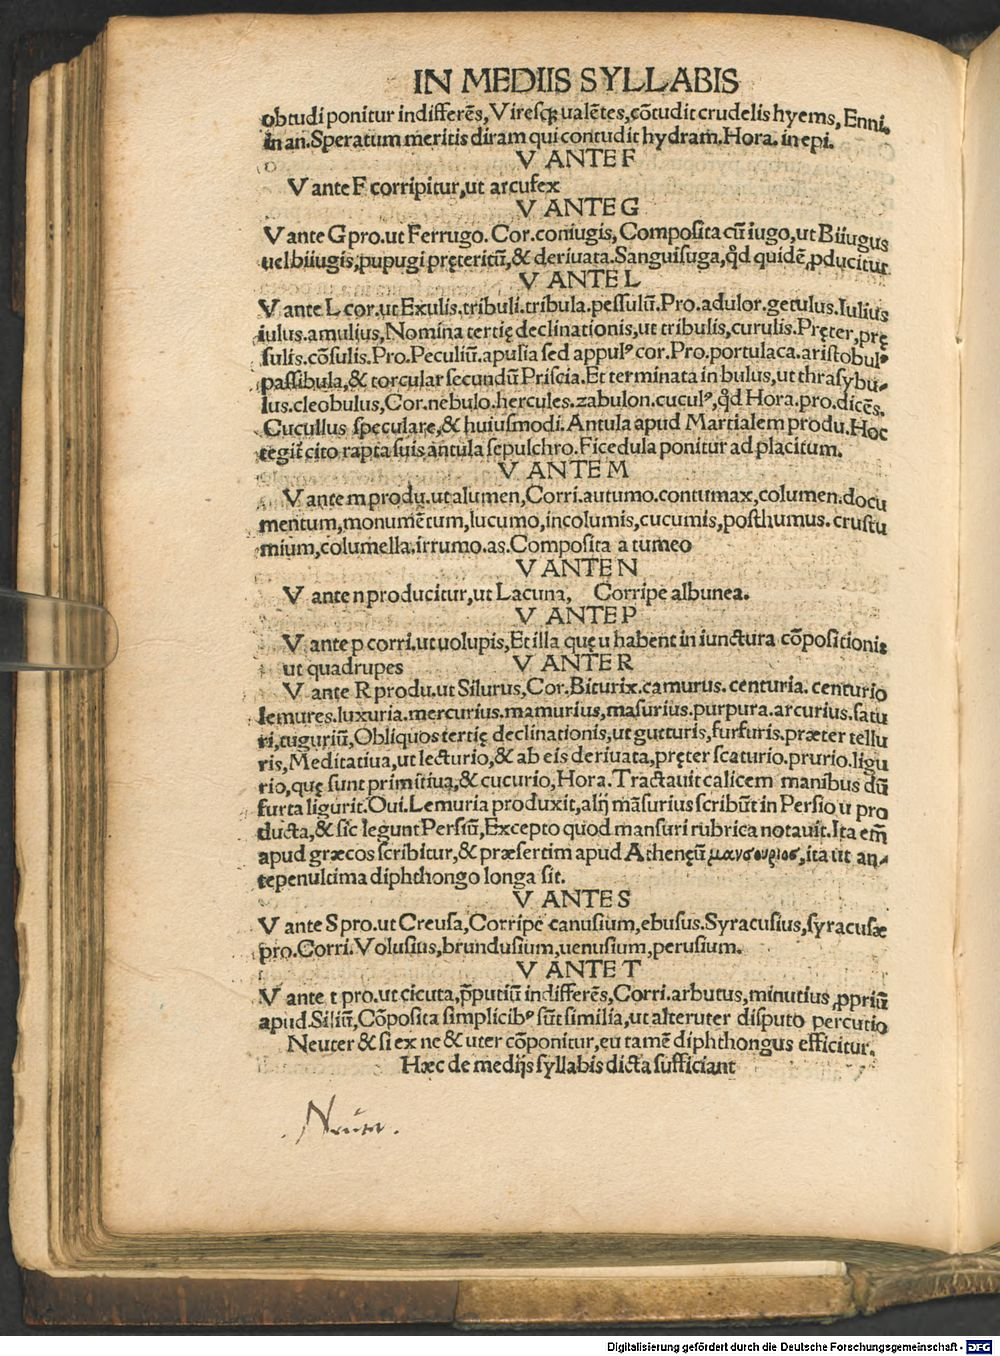 IN MEDIIS SYLLABIS
obtudi ponitur indifferẽs, Viresqꝫ ualẽtes, cõtudit crudelis hyems, Enni.
in an. Speratum meritis diram qui contudit hydram. Hora. in epi.
V ANTE F
V ante F corripitur, ut arcufex
V ANTE G
V ante G pro. ut Ferrugo. Cor. coniugis, Composita cũ iugo, ut Biiugus
uel biiugis, pupugi pręteritũ, & deriuata. Sanguisuga, qđ quidẽ, ꝓducitur
V ANTE L
V ante L cor. ut Exulis. tribuli. tribula. pessulũ. Pro. adulor. getulus. Iulius
iulus. amulius, Nomina tertię declinationis, ut tribulis, curulis. Pręter, prę
sulis. cõsulis. Pro. Peculiũ. apulia sed appulꝰ cor. Pro. portulaca. aristobulꝰ
passibula, & torcular secundũ Priscia. Et terminata in bulus, ut thrasybu-
lus. cleobulus, Cor. nebulo. hercules. zabulon. cuculꝰ, qđ Hora. pro. dicẽs.
Cucullus speculare, & huiusmodi. Antula apud Martialem produ. Hoc
tegit̃ cito rapta suis antula sepulchro. Ficedula ponitur ad placitum.
V ANTE M
V ante m produ. ut alumen, Corri. autumo. contumax, columen. docu
mentum, monumẽtum, lucumo, incolumis, cucumis, posthumus. crustu
mium, columella. irrumo. as. Composita a tumeo
V ANTE N
V ante n producitur, ut Lacuna, Corripe albunea.
V ANTE P
V ante p corri. ut uolupis, Et illa quę u habent in iunctura cõpositionis
ut quadrupes V ANTE R
V ante R produ. ut Silurus, Cor. Biturix. camurus. centuria. centurio
lemures. luxuria. mercurius. mamurius, masurius. purpura. arcurius. satu
ri, tuguriũ, Obliquos tertię declinationis, ut gutturis, furfuris. præter tellu
ris, Meditatiua, ut lecturio, & ab eis deriuata, pręter scaturio. prurio. ligu
rio, quę sunt primitiua, & cucurio, Hora. Tractauit calicem manibus dũ
furta ligurit. Oui. Lemuria produxit, alij mãsurius scribũt in Persio u pro
ducta, & sic legunt Persiũ, Excepto quod mansuri rubrica notauit. Ita em̃
apud græcos scribitur, & præsertim apud Athenęũ μανσουριος, ita ut an-
tepenultima diphthongo longa sit.
V ANTE S
V ante S pro. ut Creusa, Corripe canusium, ebusus. Syracusius, syracusæ
pro. Corri. Volusius, brundusium, uenusium, perusium.
V ANTE T
V ante t pro. ut cicuta, p̃putiũ indifferẽs, Corri. arbutus, minutius ꝓpriũ
apud. Siliũ, Cõposita simplicibꝰ sũt similia, ut alteruter disputo percutio
Neuter & si ex ne & uter cõponitur, eu tamẽ diphthongus efficitur.
Hæc de medijs syllabis dicta sufficiant
Digitalisierung gefördert durch die Deutsche Forschungsgemeinschaft - DFG